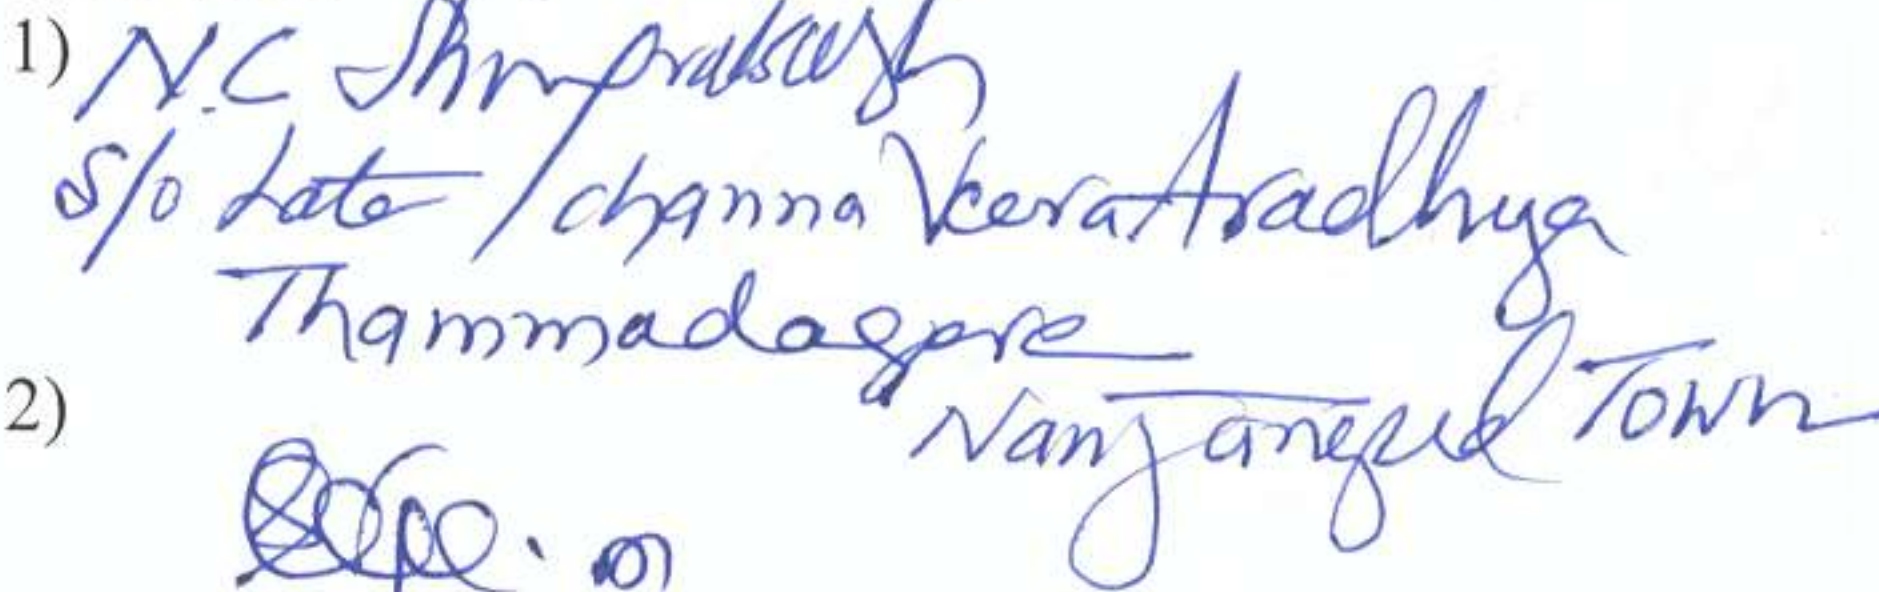 1) N.C Shivprakash
S/o Late / Channa Veera Aradhya
Thammadagere
Nanjangud Town
2)